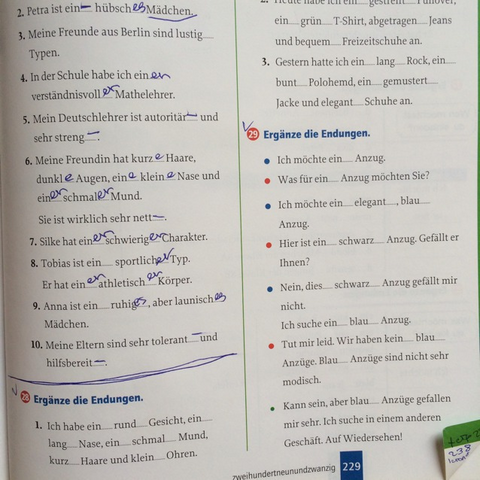 2. Petra ist ein— hübsches Mädchen.
3. Meine Freunde aus Berlin sind lustig__
Typen.
4. In der Schule habe ich einen
verständnisvoller Mathelehrer.
5. Mein Deutschlehrer ist autoritär— und
sehr streng—.
6. Meine Freundin hat kurze Haare,
dunkle Augen, eine kleine Nase und
einer schmaler Mund.
Sie ist wirklich sehr nett—.
7. Silke hat einer schwieriger Charakter.
8. Tobias ist ein__ sportlicher Typ.
Er hat einen athletischer Körper.
9. Anna ist ein__ ruhiges, aber launisches
Mädchen.
10. Meine Eltern sind sehr tolerant— und
hilfsbereit—.
28 Ergänze die Endungen.
1. Ich habe ein__ rund__ Gesicht, ein__
lang__ Nase, ein__ schmal__ Mund,
kurz__ Haare und klein__ Ohren.
ein__ grün__ T-Shirt, abgetragen__ Jeans
und bequem__ Freizeitschuhe an.
3. Gestern hatte ich ein__ lang__ Rock, ein__
bunt__ Polohemd, ein__ gemustert__
Jacke und elegant__ Schuhe an.
29 Ergänze die Endungen.
Ich möchte ein__ Anzug.
Was für ein__ Anzug möchten Sie?
Ich möchte ein__ elegant__, blau__
Anzug.
Hier ist ein__ schwarz__ Anzug. Gefällt er
Ihnen?
Nein, dies__ schwarz__ Anzug gefällt mir
nicht.
Ich suche ein__ blau__ Anzug.
Tut mir leid. Wir haben kein__ blau__
Anzüge. Blau__ Anzüge sind nicht sehr
modisch.
Kann sein, aber blau__ Anzüge gefallen
mir sehr. Ich suche in einem anderen
Geschäft. Auf Wiedersehen!
zweihundertneunundzwanzig 229